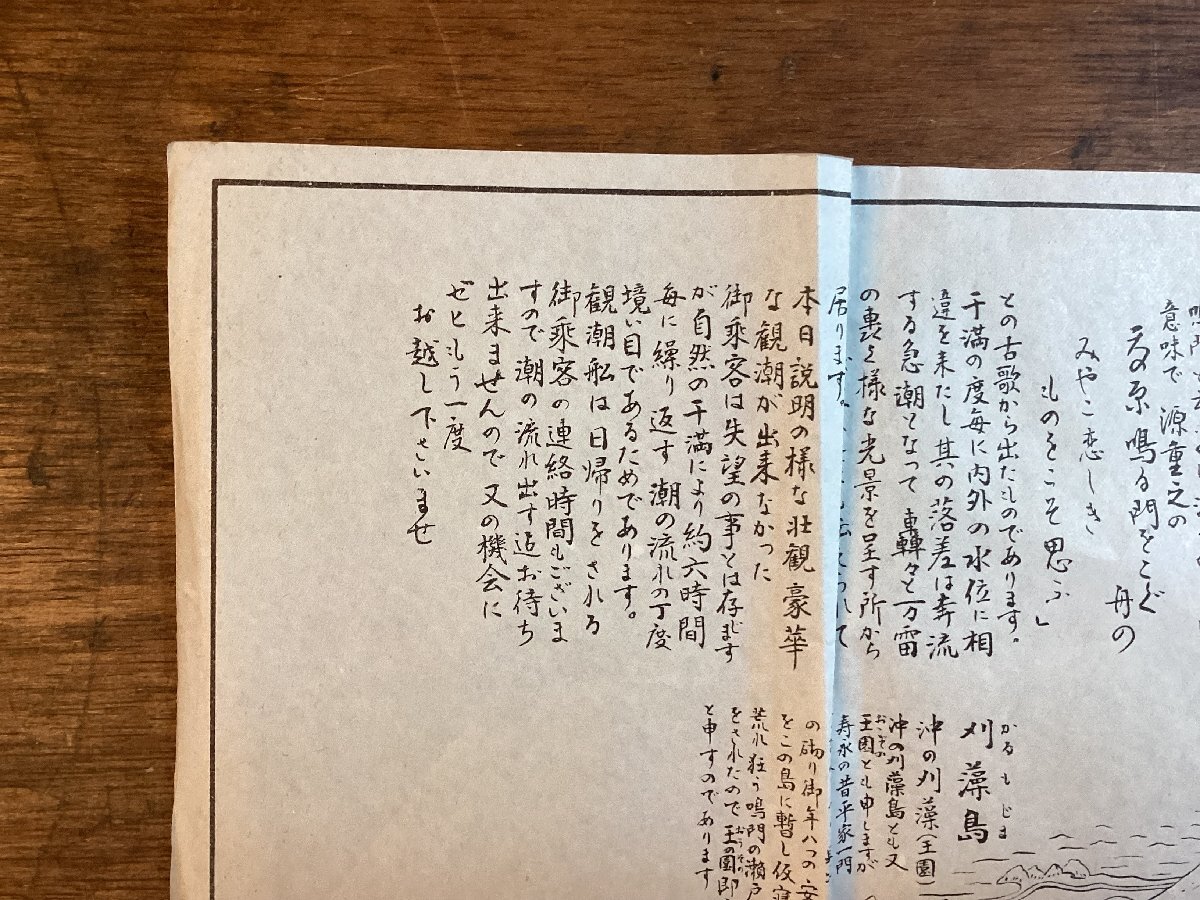 意味で 源重之の
みやこ恋しき
ものをこそ思ふ」
との古歌から出たものであります。
干満の度毎に内外の水位に相
違を来たし其の落差は奔流
する急潮となって 轟々と万雷
の轟く様な光景を呈す所から
居ります。
本日説明の様な壮観豪華
な観潮が出来なかった
御乗客は失望の事とは存じます
が自然の干満により約六時間
毎に繰り返す潮の流れの丁度
境い目であるためであります。
観潮船は日帰りをされる
御乗客の連絡時間もございま
すので潮の流れ出す迄お待ち
出来ませんので又の機会に
ぜともう一度
お越し下さいませ
かるもじま
刈藻島
沖の刈藻(王園)
沖の刈藻島とも又
王園とも申しますが
寿永の昔平家一門
の砌り御年八つの安
をこの島に暫し仮寝
荒れ狂う鳴門の瀬戸
をされたので王の園即
と申すのであります